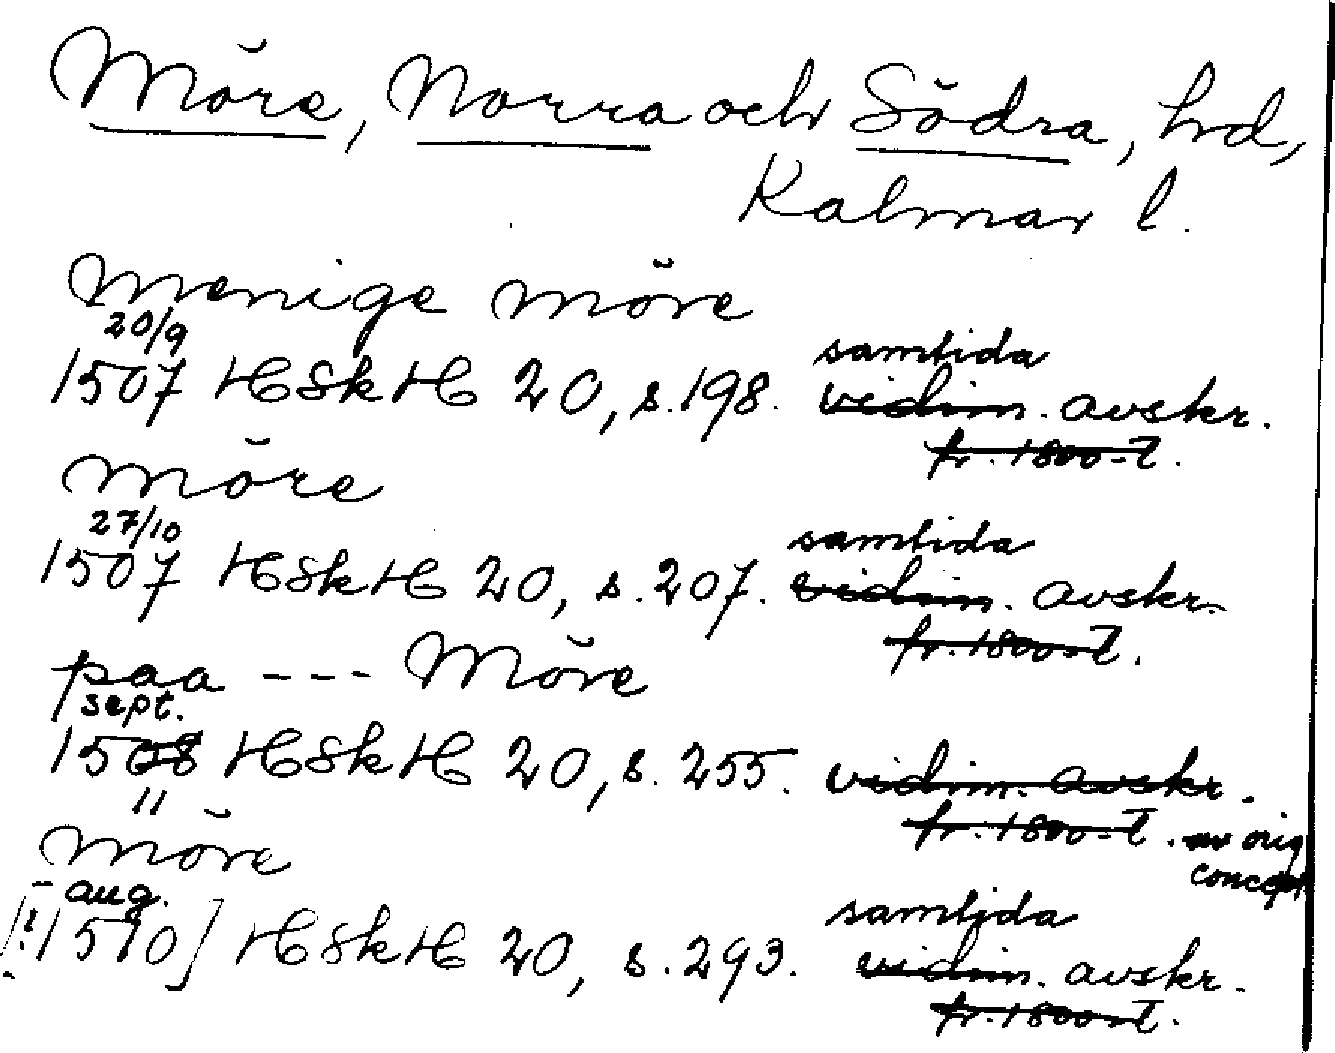 Möre, Norra och Södra, hd,
Kalmar l.
menige möre
20/9 samtida
1507 HSkH 20, s. 198. vidim. avskr.
fr. 1800-t.
möre
27/10 samtida
1507 HSkH 20, s. 207. vidim. avskr.
fr. 1800-t.
paa --- Möre
sept.
1508 HSkH 20, s. 255. vidim. avskr.
" fr. 1800-t. av orig
concept
möre
aug. samtida
[1510] HSkH 20, s. 293. vidim. avskr.
fr. 1800-t.